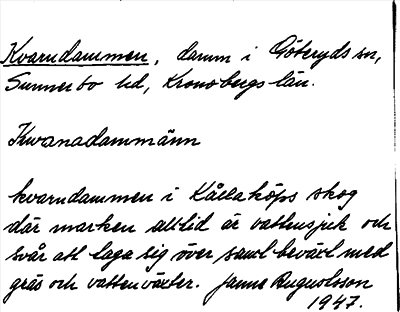 Kvarndammen, damm i Göteryds sn,
Sunnerbo hd, Kronobergs län.
Kwanadammänn
kvarndammen i Kållaköps skog
där marken alltid är vattensjuk och
svår att laga sig över samt beväxt med
gräs och vattenväxter. Janne Augustsson
1947.